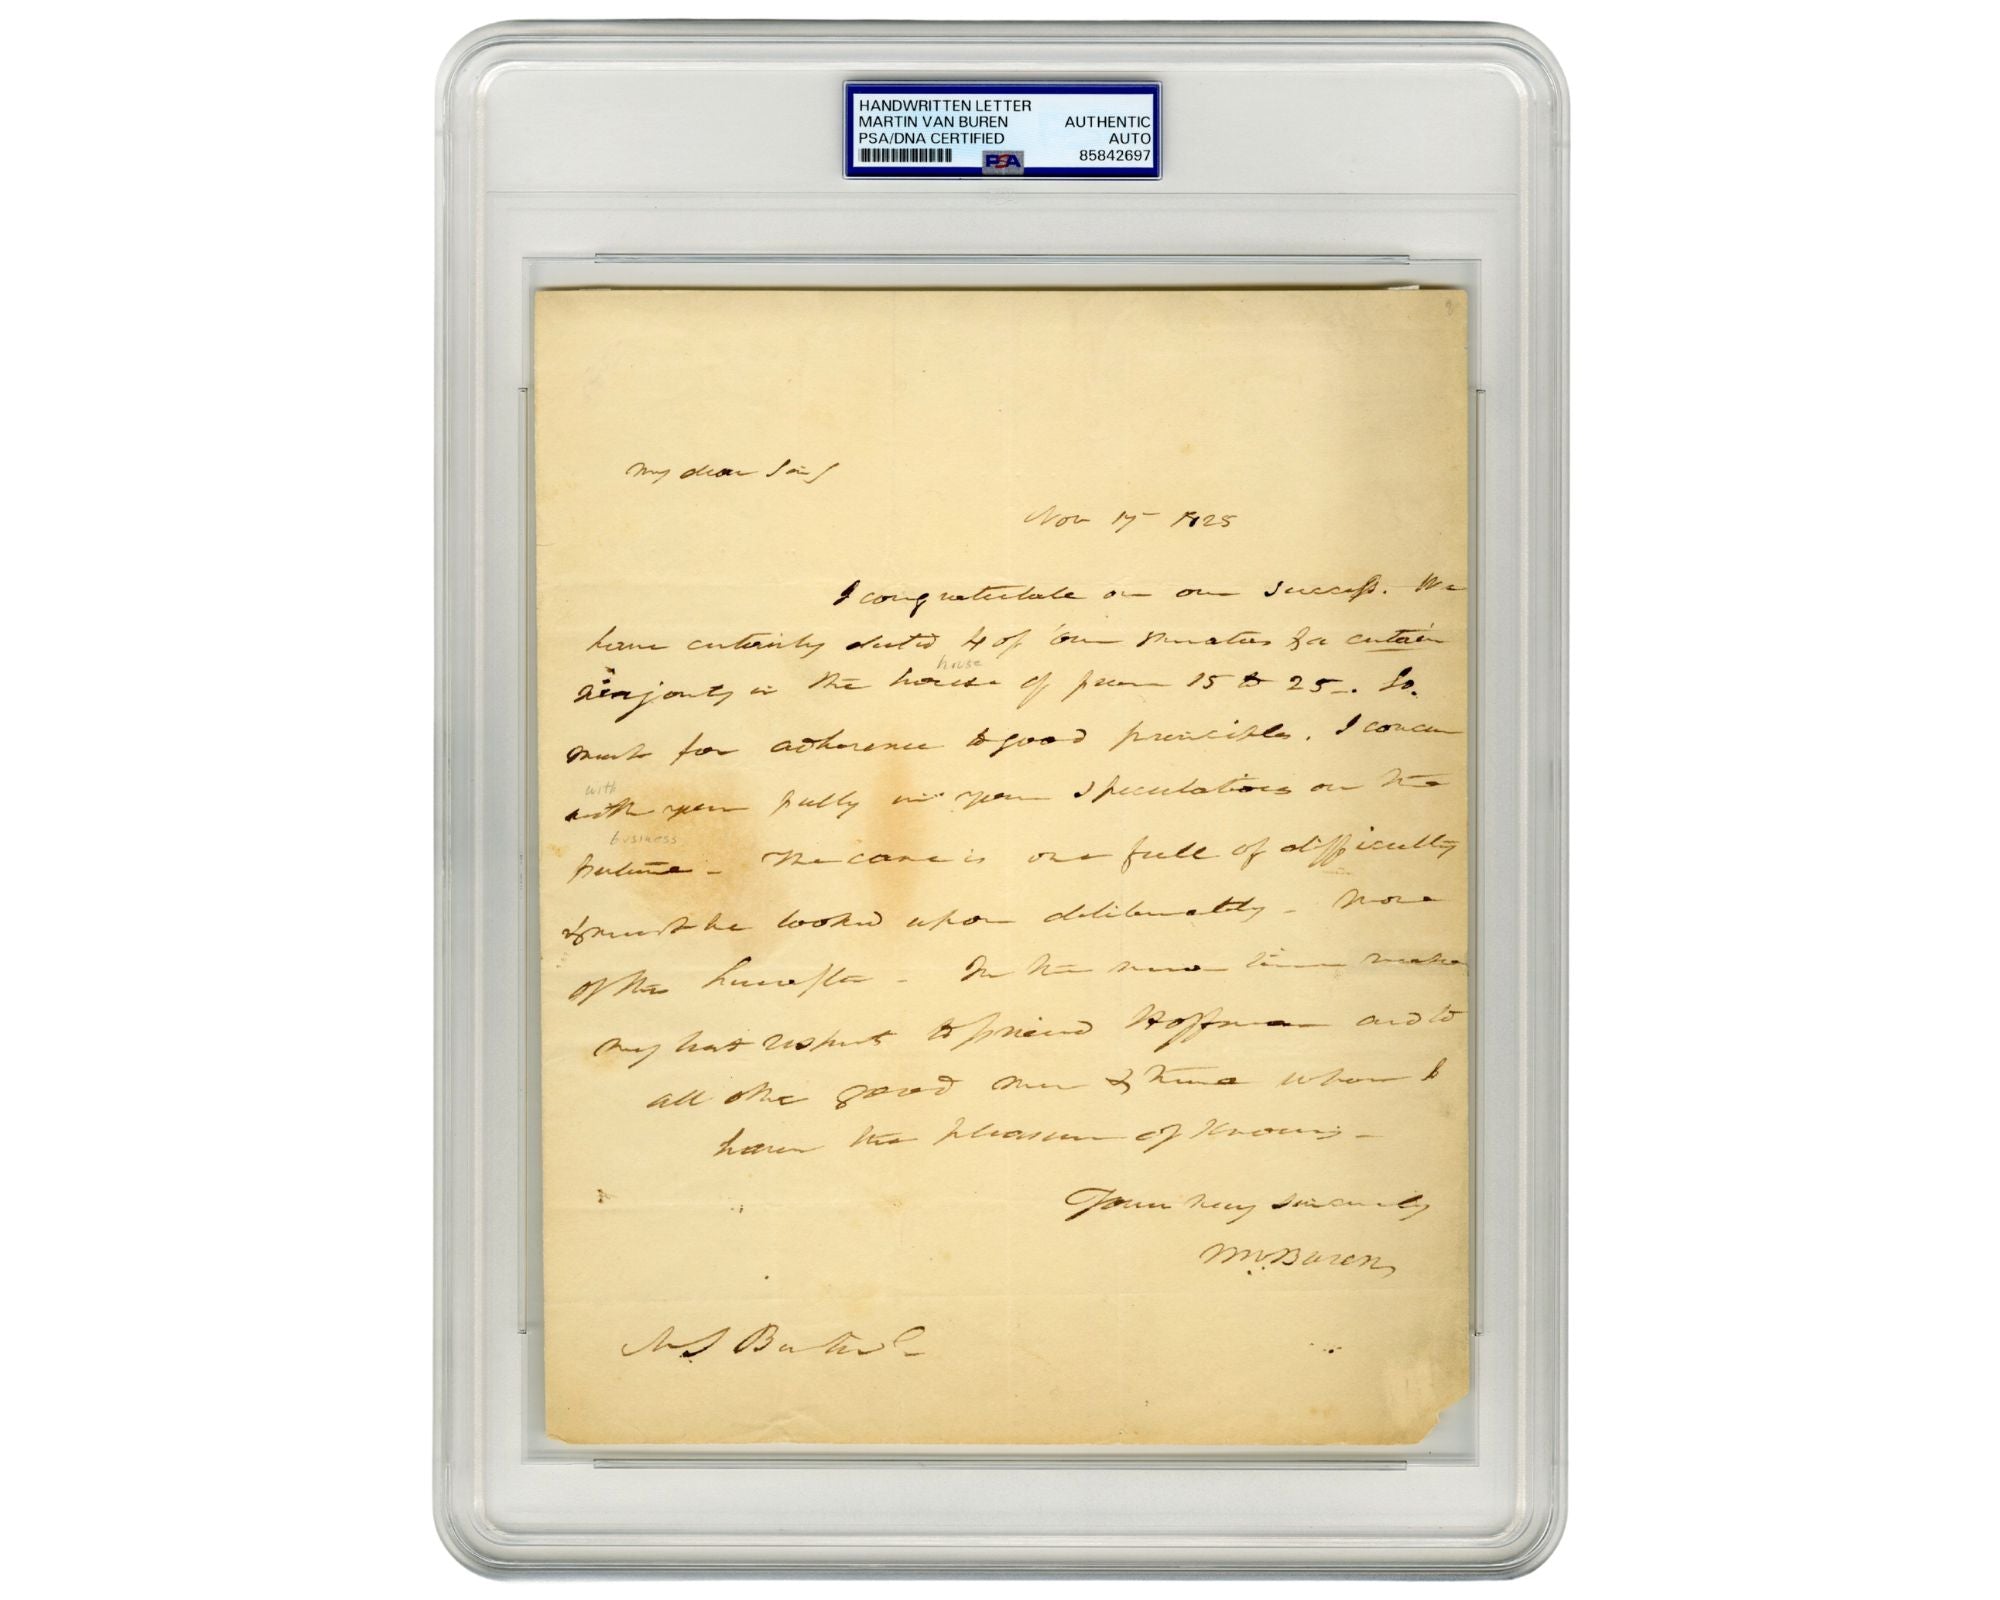 HANDWRITTEN LETTER
MARTIN VAN BUREN AUTHENTIC
PSA/DNA CERTIFIED AUTO
PSA 85842697
My dear Sir
Nov 17 1825
I congratulate on our success. We
have certainly elected 4 of our Senators & a certain
majority in the house of from 15 to 25. So
house
much for adherence to good principles. I concur
with
with you fully in your speculations on the
business
future - The case is one full of difficulty
& must be looked upon deliberately - More
of this hereafter - In the mean time make
my best respects to friend Hoffman and to
all the good men & true whom I
have the pleasure of knowing -
Yours very sincerely
MVBuren
Butler